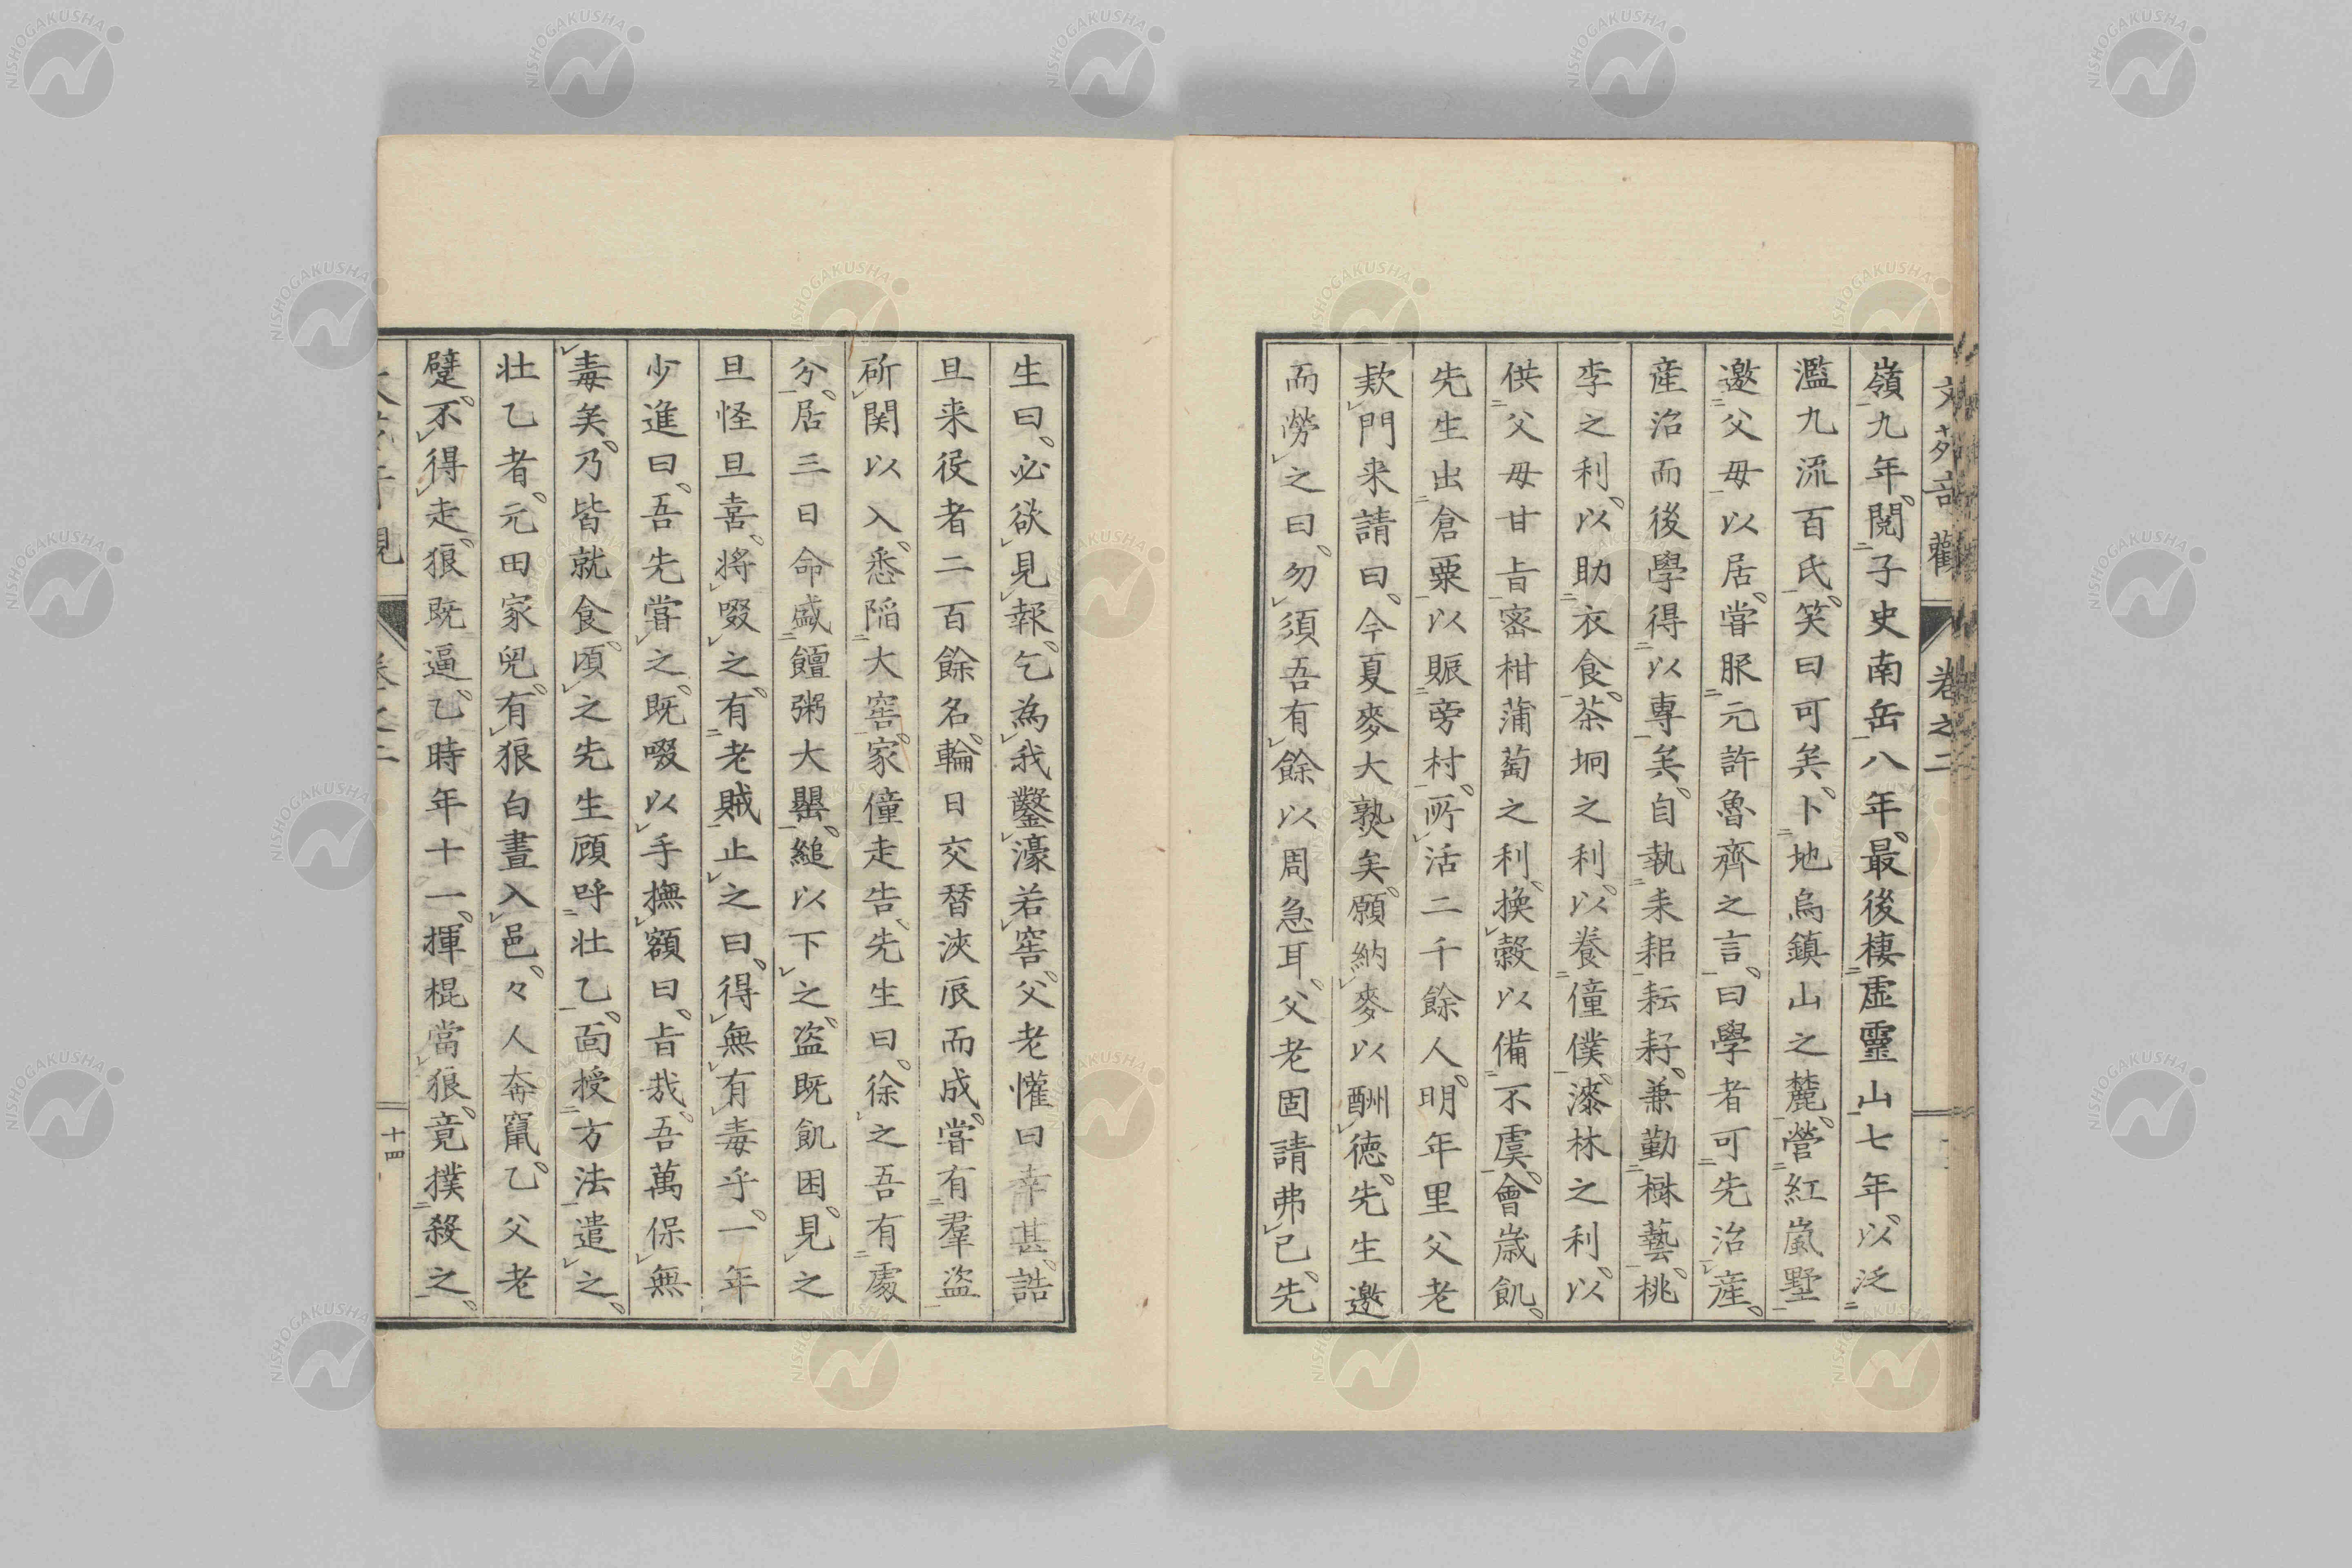 嶺九年閲子史南岳八年最後棲虚靈山七年以泛
濫九流百氏笑曰可矣卜地烏鎮山之麓營紅嵐墅
邀父母以居嘗服元許魯齊之言曰學者可先治産
産治而後學得以專矣自執耒耜耘耔兼勤樹藝桃
李之利以助衣食茶坰之利以養僮僕漆林之利以
供父母甘旨密柑蒲萄之利換穀以備不虞會歳飢
先生出倉粟以賑旁村所活二千餘人明年里父老
欵門来請曰今夏麥大熟矣願納麥以酬德先生邀
而勞之曰勿須吾有餘以周急耳父老固請弗已先
生曰必欲見報乞為我鑿濠若窖父老懽曰幸甚詰
旦来役者二百餘名輪日交替浹辰而成嘗有羣盗
斫関以入悉陷大窖家僮走告先生曰徐之吾有處
分居三日命盛饘粥大罌縋以下之盗既飢困見之
且怪且喜將啜之有老賊止之曰得無有毒乎一年
少進曰吾先嘗之既啜以手撫額曰旨哉吾萬保無
毒矣乃皆就食頃之先生顧呼壮乙面授方法遣之
壮乙者元田家兒有狼白晝入邑々人奔竄乙父老
躄不得走狼既逼乙時年十一揮棍當狼竟撲殺之
文苑奇觀
卷之二
十四
NISHOGAKUSHA